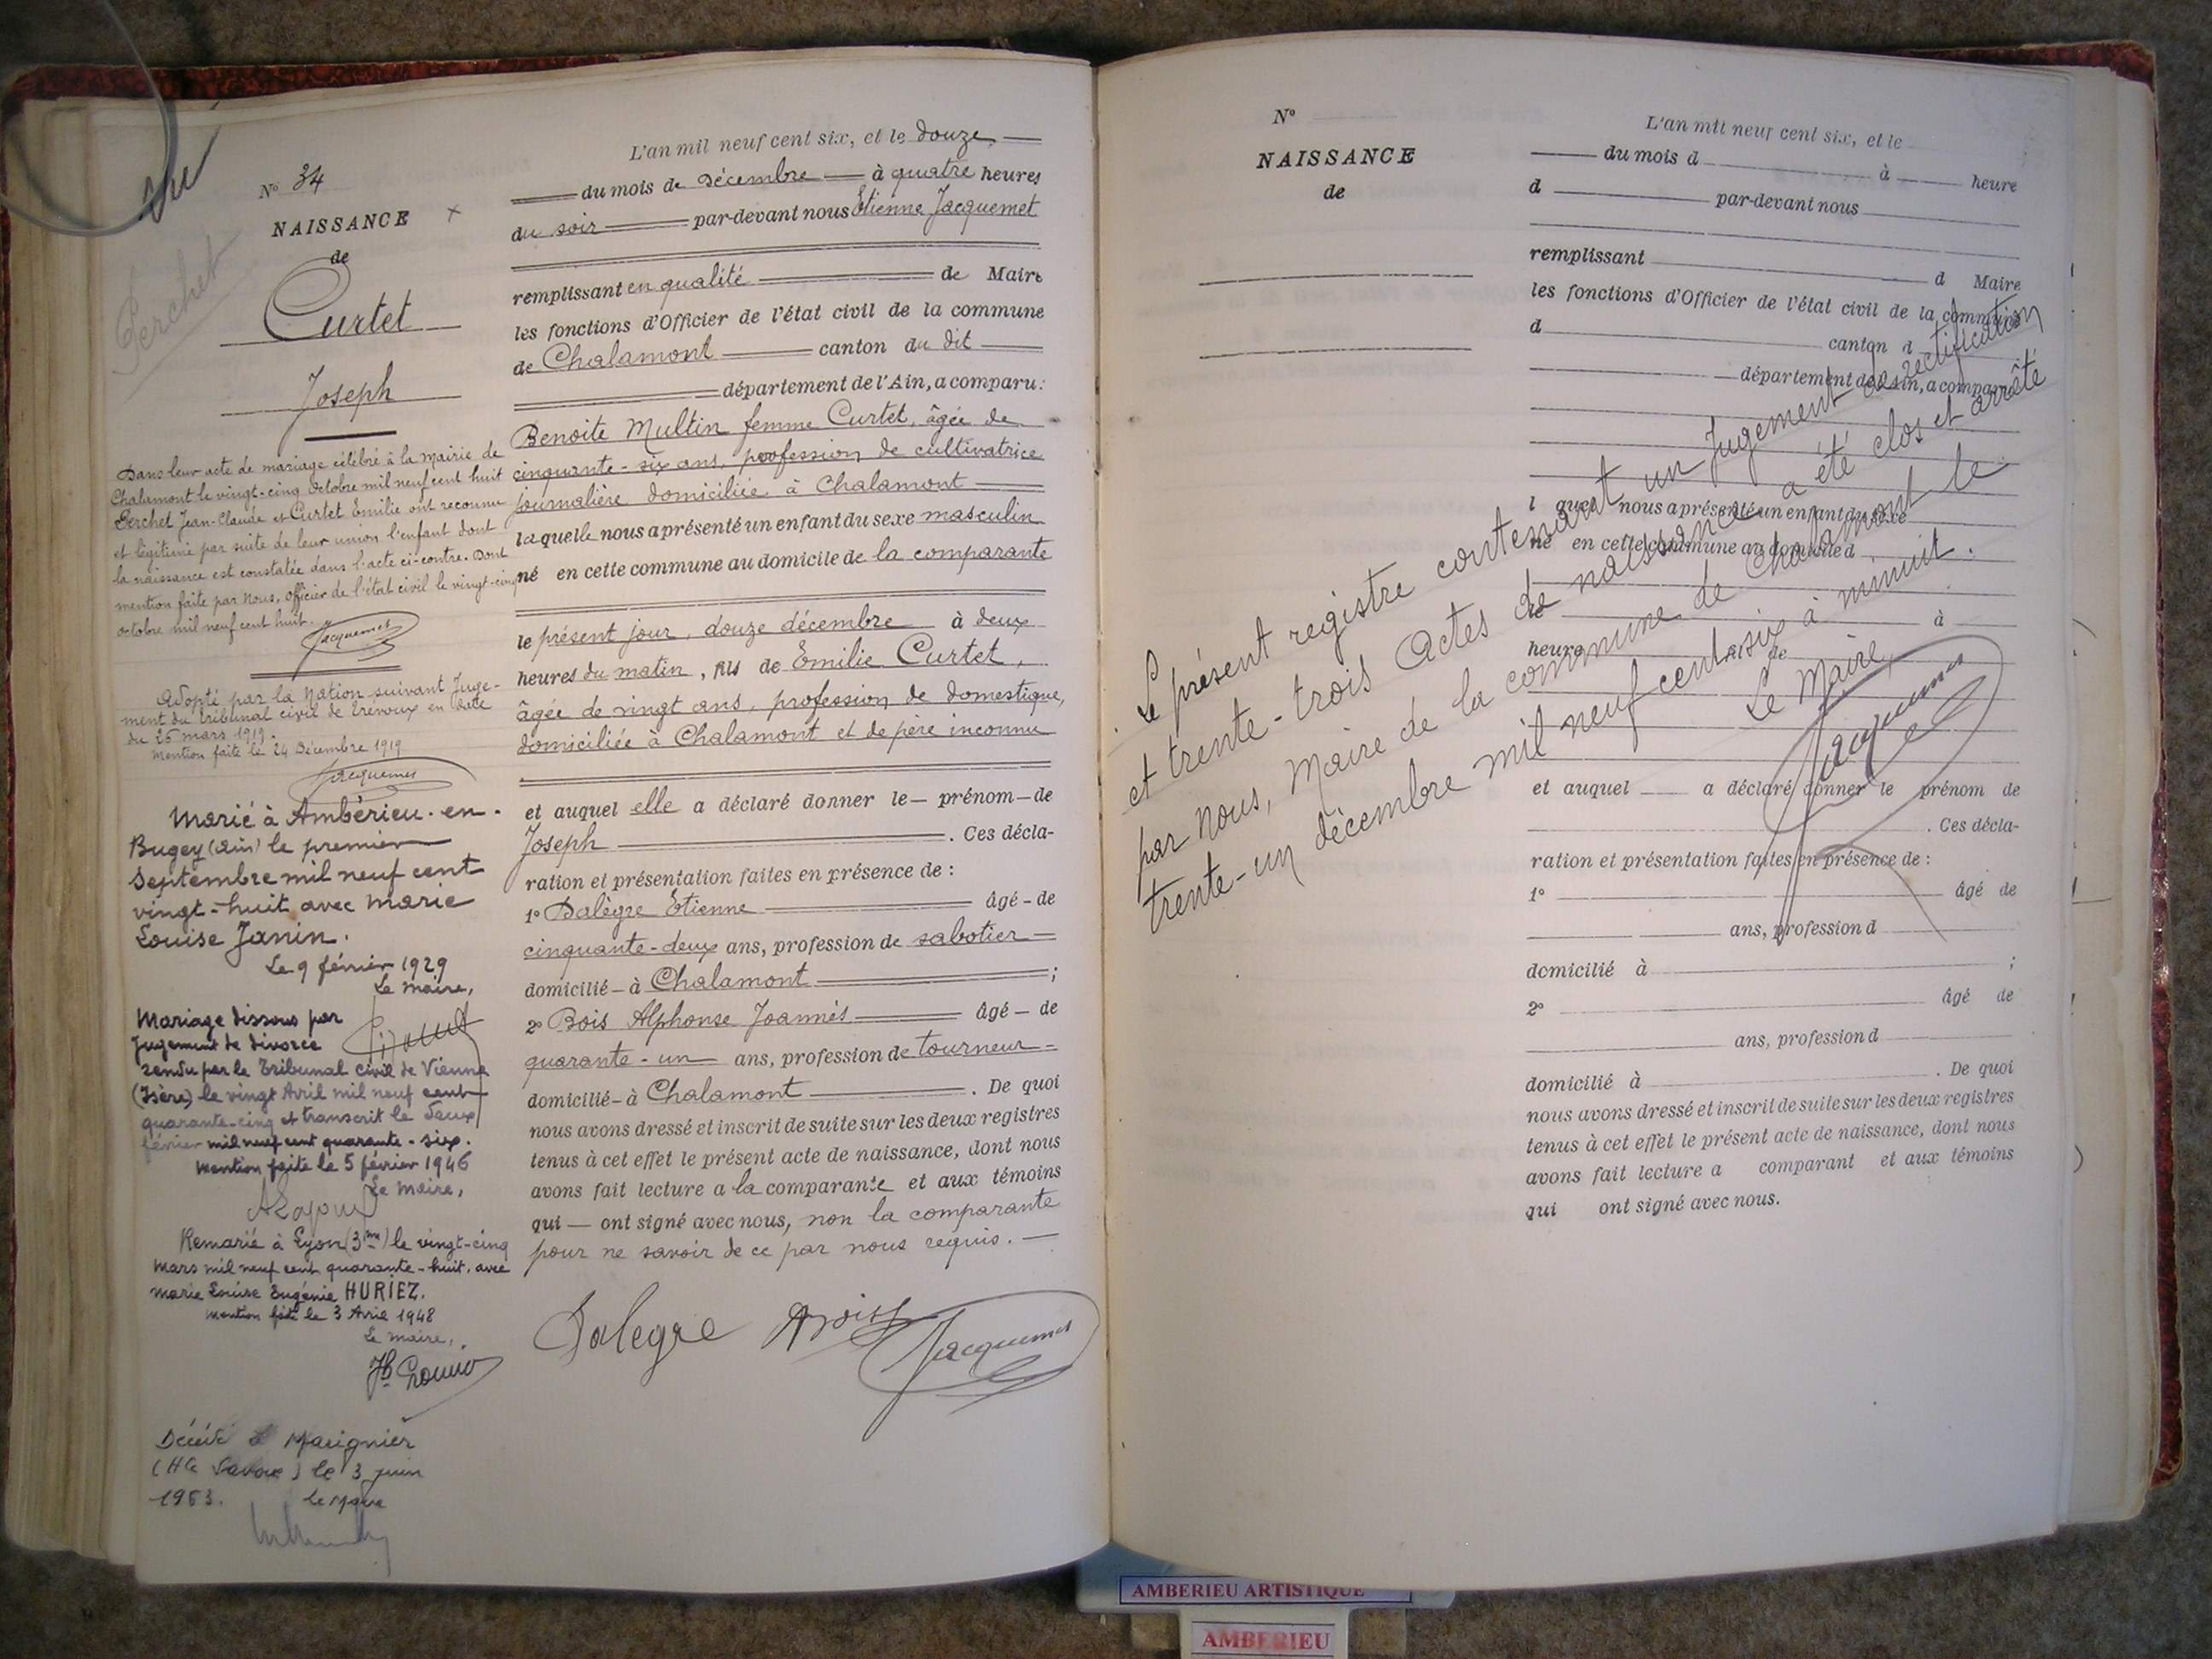 vu
Perchet
N° 34
NAISSANCE
de
Curtet
Joseph
Dans leur acte de mariage célébré à la Mairie de
Chalamont le vingt-cinq Octobre mil neuf cent huit
Perchet Jean-Claude et Curtet Emilie ont reconnu
et légitimé par suite de leur union l'enfant dont
la naissance est constatée dans l'acte ci-contre. Dont
mention faite par Nous, Officier de l'état civil le vingt-cinq
octobre mil neuf cent huit.
Jacquemet
Adopté par la Nation suivant Juge-
ment du tribunal civil de Trévoux en date
du 26 mars 1919.
Mention faite le 24 Décembre 1919
Jacquemet
Marié à Ambérieu-en-
Bugey (Ain) le premier
Septembre mil neuf cent
vingt-huit avec Marie
Louise Janin.
Le 9 février 1929
Le Maire,
Mariage dissous par
Jugement de divorce
rendu par le Tribunal civil de Vienne
(Isère) le vingt Avril mil neuf cent
quarante-cinq et transcrit le deux
février mil neuf cent quarante-six.
Mention faite le 5 février 1946
Le Maire,
Remarié à Lyon (3me) le vingt-cinq
Mars mil neuf cent quarante-huit, avec
Marie Louise Eugénie HURIEZ.
Mention faite le 3 Avril 1948
Le Maire,
Décédé à Marignier
(Hte Savoie) le 3 juin
1963. Le Maire
L'an mil neuf cent six, et le douze
du mois de Décembre à quatre heures
du soir par-devant nous Etienne Jacquemet
remplissant en qualité de Maire
les fonctions d'Officier de l'état civil de la commune
de Chalamont canton du dit
département de l'Ain, a comparu:
Benoite Multin femme Curtet, âgée de
cinquante-six ans, profession de cultivatrice
journalière domiciliée à Chalamont
laquelle nous a présenté un enfant du sexe masculin
né en cette commune au domicile de la comparante
le présent jour, douze décembre à deux
heures du matin, fils de Emilie Curtet,
âgée de vingt ans, profession de domestique,
domiciliée à Chalamont et de père inconnu
et auquel elle a déclaré donner le prénom de
Joseph. Ces décla-
ration et présentation faites en présence de :
1° Dalègre Etienne âgé de
cinquante-deux ans, profession de sabotier
domicilié à Chalamont ;
2° Bois Alphonse Joannès âgé de
quarante-un ans, profession de tourneur
domicilié à Chalamont. De quoi
nous avons dressé et inscrit de suite sur les deux registres
tenus à cet effet le présent acte de naissance, dont nous
avons fait lecture a la comparante et aux témoins
qui ont signé avec nous, non la comparante
pour ne savoir de ce par nous requis.
Dalegre ABois Jacquemet
N°
NAISSANCE
de
L'an mil neuf cent six, et le
du mois d à heure
d par-devant nous
remplissant d Maire
les fonctions d'Officier de l'état civil de la commune
d canton d
département de l'Ain, a comparu
l quel nous a présenté un enfant du sexe
né en cette commune au domicile d
le à
heure de
et auquel a déclaré donner le prénom de
. Ces décla-
ration et présentation faites en présence de :
1° âgé de
ans, profession d
domicilié à ;
2° âgé de
ans, profession d
domicilié à . De quoi
nous avons dressé et inscrit de suite sur les deux registres
tenus à cet effet le présent acte de naissance, dont nous
avons fait lecture a comparant et aux témoins
qui ont signé avec nous.
Le présent registre contenant un Jugement de rectification
et trente-trois Actes de naissance a été clos et arrêté
par Nous, Maire de la commune de Chalamont le
trente-un décembre mil neuf cent six à minuit.
Le Maire,
Jacquemet
AMBERIEU ARTISTIQUE
AMBERIEU